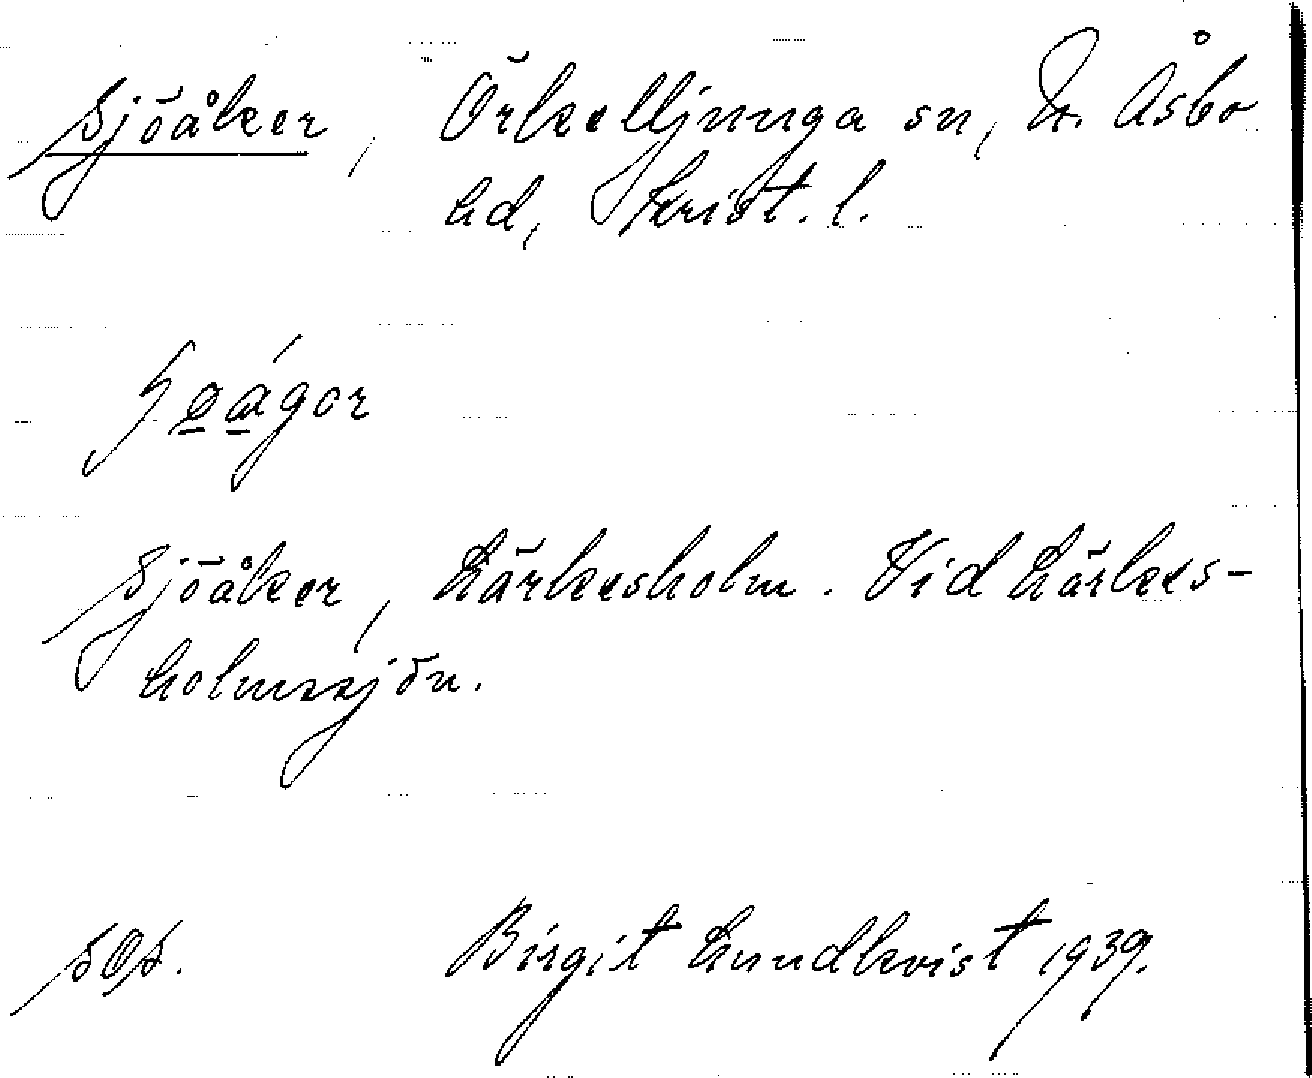 Sjöåker, Örkelljunga sn, N. Åsbo
hd, Krist. l.
Sjöåker, Lärkesholm. Vid Lärkes-
holmssjön.
Birgit Lundkvist 1939.